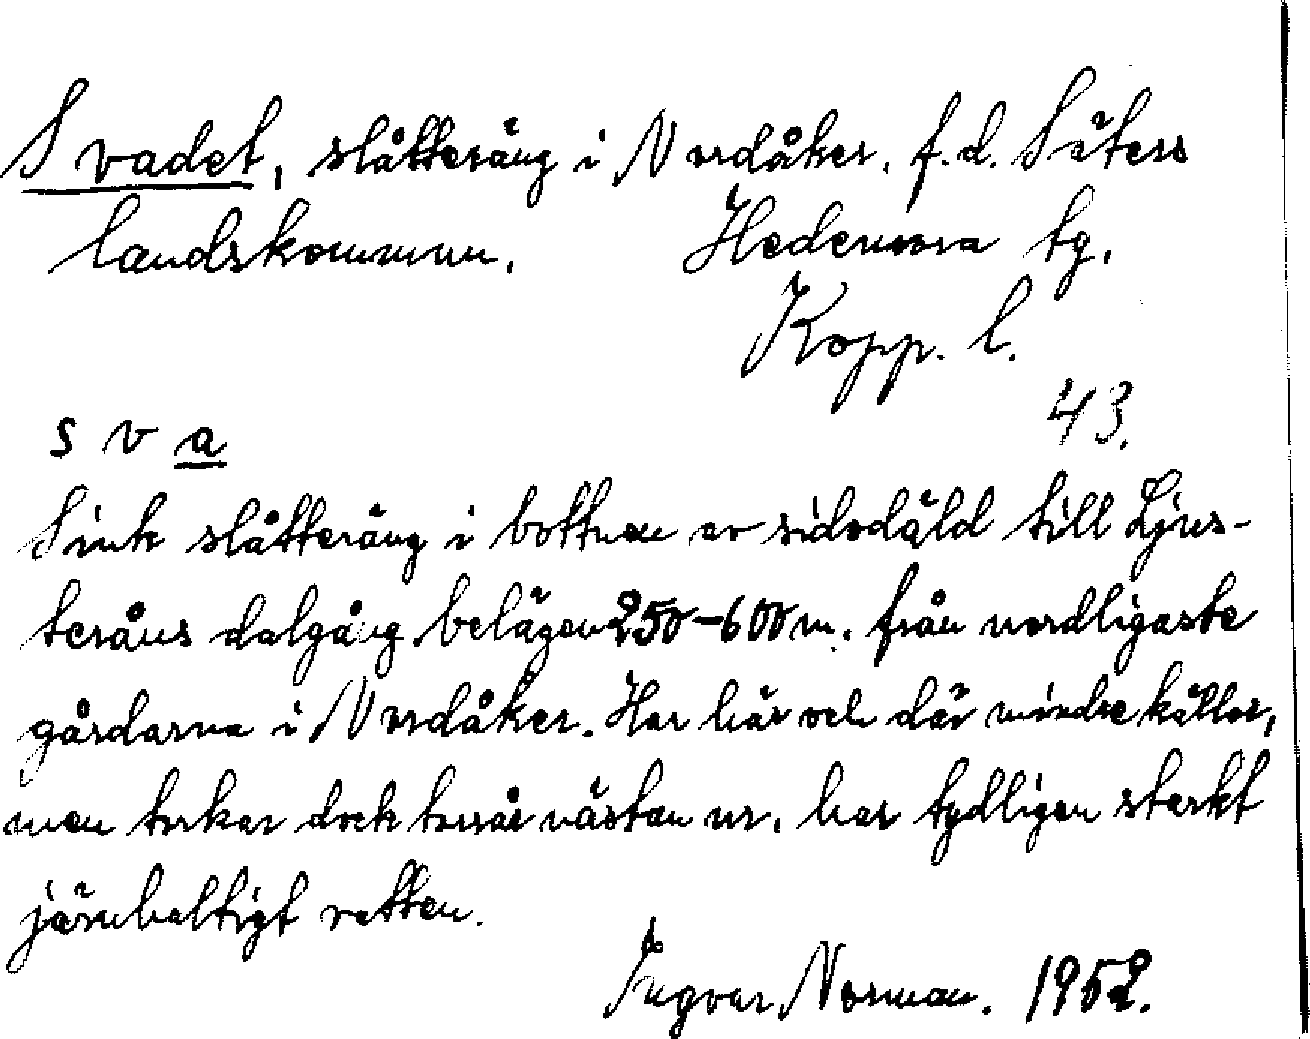 Svadet, slåtteräng i Nordåker, f.d. Säters
landskommun. Hedemora tg.
Kopp. l.
43.
s v a
Sink slåtteräng i bottnen av sidodäld till Ljus-
teråns dalgång, belägen 250-600 m. från nordligaste
gårdarna i Nordåker. Har här och där mindre källor,
men torkar dock torrår nästan ur, har tydligen starkt
järnhaltigt vatten.
Ingvar Norman. 1952.